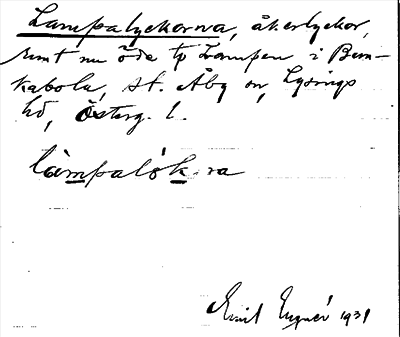 Lampalyckorna, åkerlyckor,
samt nu öde tp Lampen i Bem-
kabola, St. Åby sn, Lysings
hd, Österg. l.
låmpalók.ra
Emil 1931